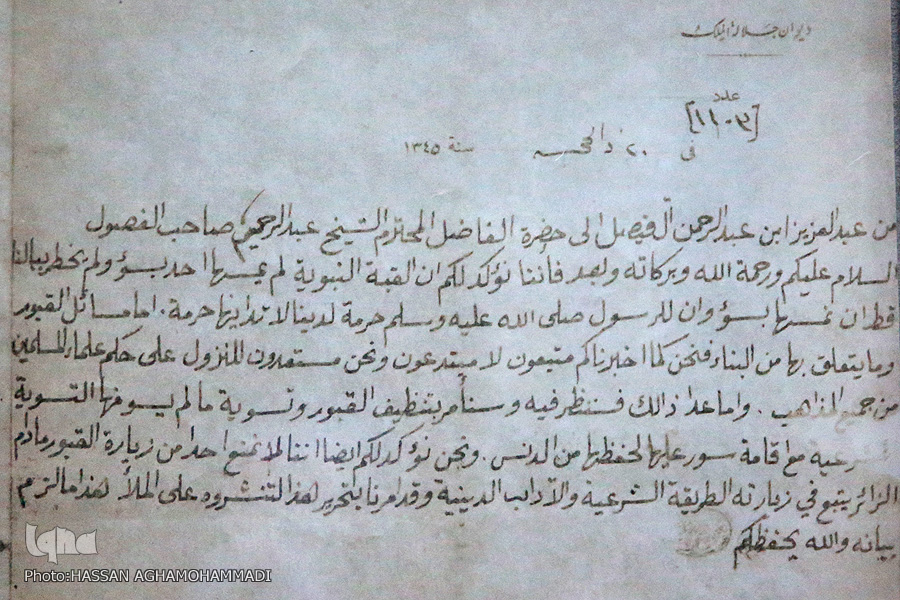 ديوان جلالة الملك
عدد
[١١٠٣]
في ٢٠ ذالحجه سنة ١٣٤٥
من عبدالعزيز ابن عبدالرحمن آل فيصل الى حضرة الفاضل المحترم الشيخ عبدالرحيم صاحب الفصول
السلام عليكم ورحمة الله وبركاته وبعد فأننا نؤكد لكم ان القبة النبوية لم يمسها احد بسؤ ولم يخطر ببالنا
قط ان نمسها بسؤ وان للرسول صلى الله عليه وسلم حرمة لدينا لا تدانيها حرمة . اما مسائل القبور
وما يتعلق بها من البناء فنحن كما اخبرناكم متبعون لا مبتدعون ونحن مستعدون للنزول على حكم علماء المسلمين
من جميع المذاهب . واما عدا ذالك فسننظر فيه وسنأمر بتنظيف القبور وتسوية ما لم يسوفها التسوية
الشرعيه مع اقامة سور عليها لحفظها من الدنس . ونحن نؤكد لكم ايضا اننا لا نمنع احدا من زيارة القبور مادام
الزائر يتبع في زيارته الطريقة الشرعية والآداب الدينية وقد امرنا بتحرير هذا لتنشروه على الملأ هذا ما لزم
بيانه والله يحفظكم
iqna
Photo:HASSAN AGHAMOHAMMADI